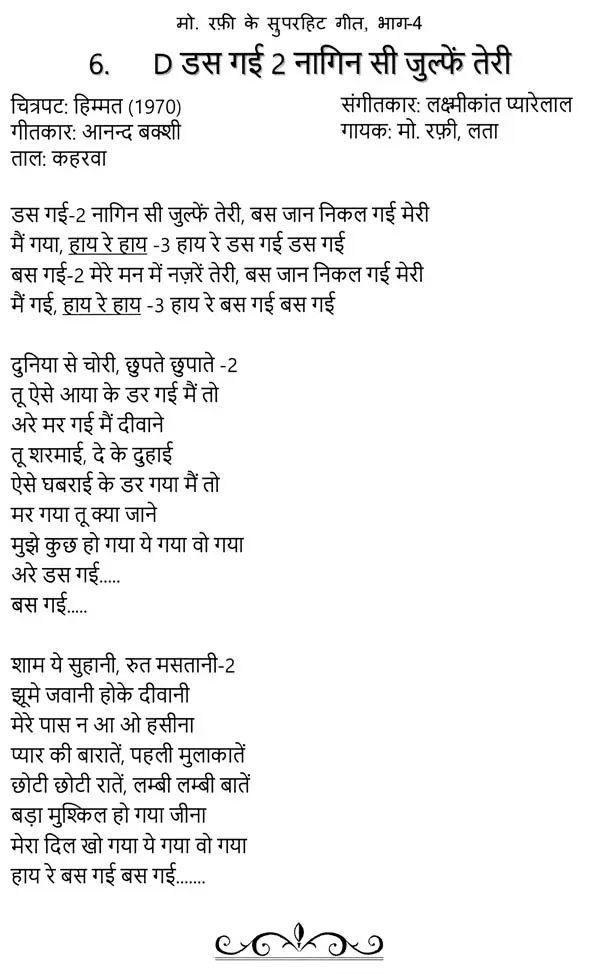 मो. रफ़ी के सुपरहिट गीत, भाग-4
6. D डस गई 2 नागिन सी जुल्फें तेरी
चित्रपट: हिम्मत (1970)
संगीतकार: लक्ष्मीकांत प्यारेलाल
गीतकार: आनन्द बक्शी
गायक: मो. रफ़ी, लता
ताल: कहरवा
डस गई-2 नागिन सी जुल्फें तेरी, बस जान निकल गई मेरी
मैं गया, हाय रे हाय -3 हाय रे डस गई डस गई
बस गई-2 मेरे मन में नज़रें तेरी, बस जान निकल गई मेरी
मैं गई, हाय रे हाय -3 हाय रे बस गई बस गई
दुनिया से चोरी, छुपते छुपाते -2
तू ऐसे आया के डर गई मैं तो
अरे मर गई मैं दीवाने
तू शरमाई, दे के दुहाई
ऐसे घबराई के डर गया मैं तो
मर गया तू क्या जाने
मुझे कुछ हो गया ये गया वो गया
अरे डस गई.....
बस गई.....
शाम ये सुहानी, रुत मसतानी-2
झूमे जवानी होके दीवानी
मेरे पास न आ ओ हसीना
प्यार की बारातें, पहली मुलाकातें
छोटी छोटी रातें, लम्बी लम्बी बातें
बड़ा मुश्किल हो गया जीना
मेरा दिल खो गया ये गया वो गया
हाय रे बस गई बस गई.......